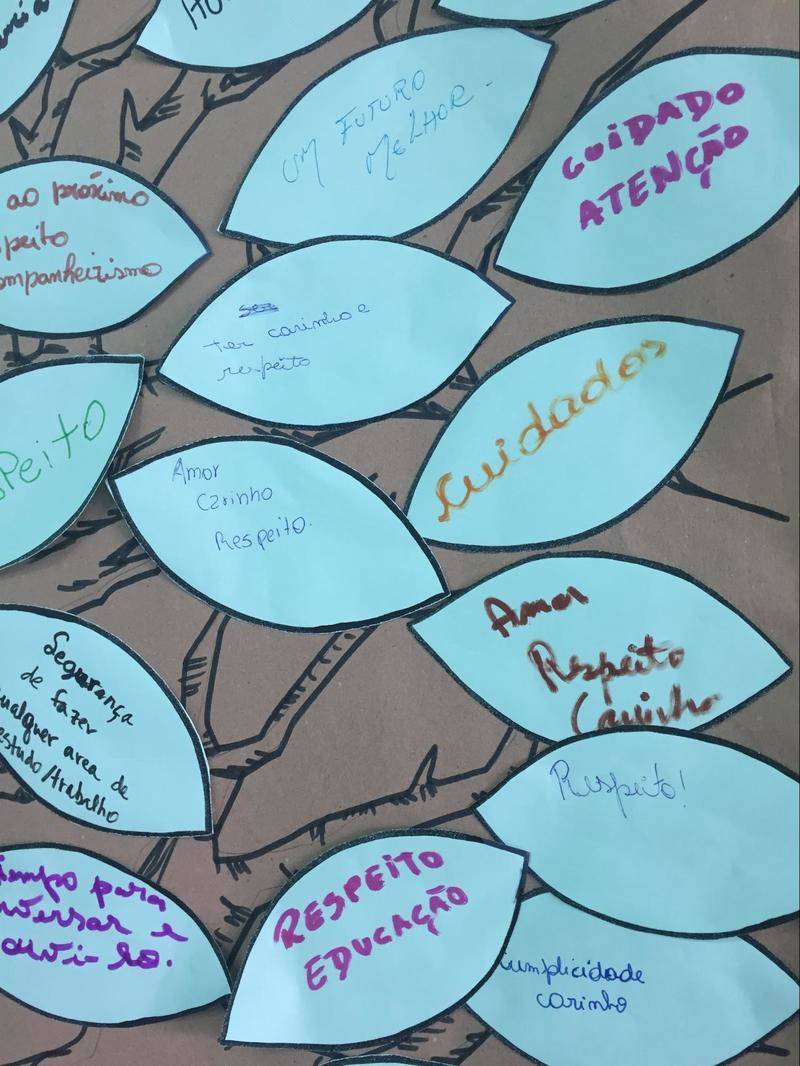 UM FUTURO
MELHOR.
CUIDADO
ATENÇÃO
ao próximo
peito
ompanheirismo
ter carinho e
respeito
cuidados
peito
Amor
Carinho
Respeito.
Amor
Respeito
Carinho
Segurança
de fazer
ualquer area de
estudo/trabalho
Respeito!
empo para
versar e
ouvi-lo.
RESPEITO
EDUCAÇÃO
Cumplicidade
carinho